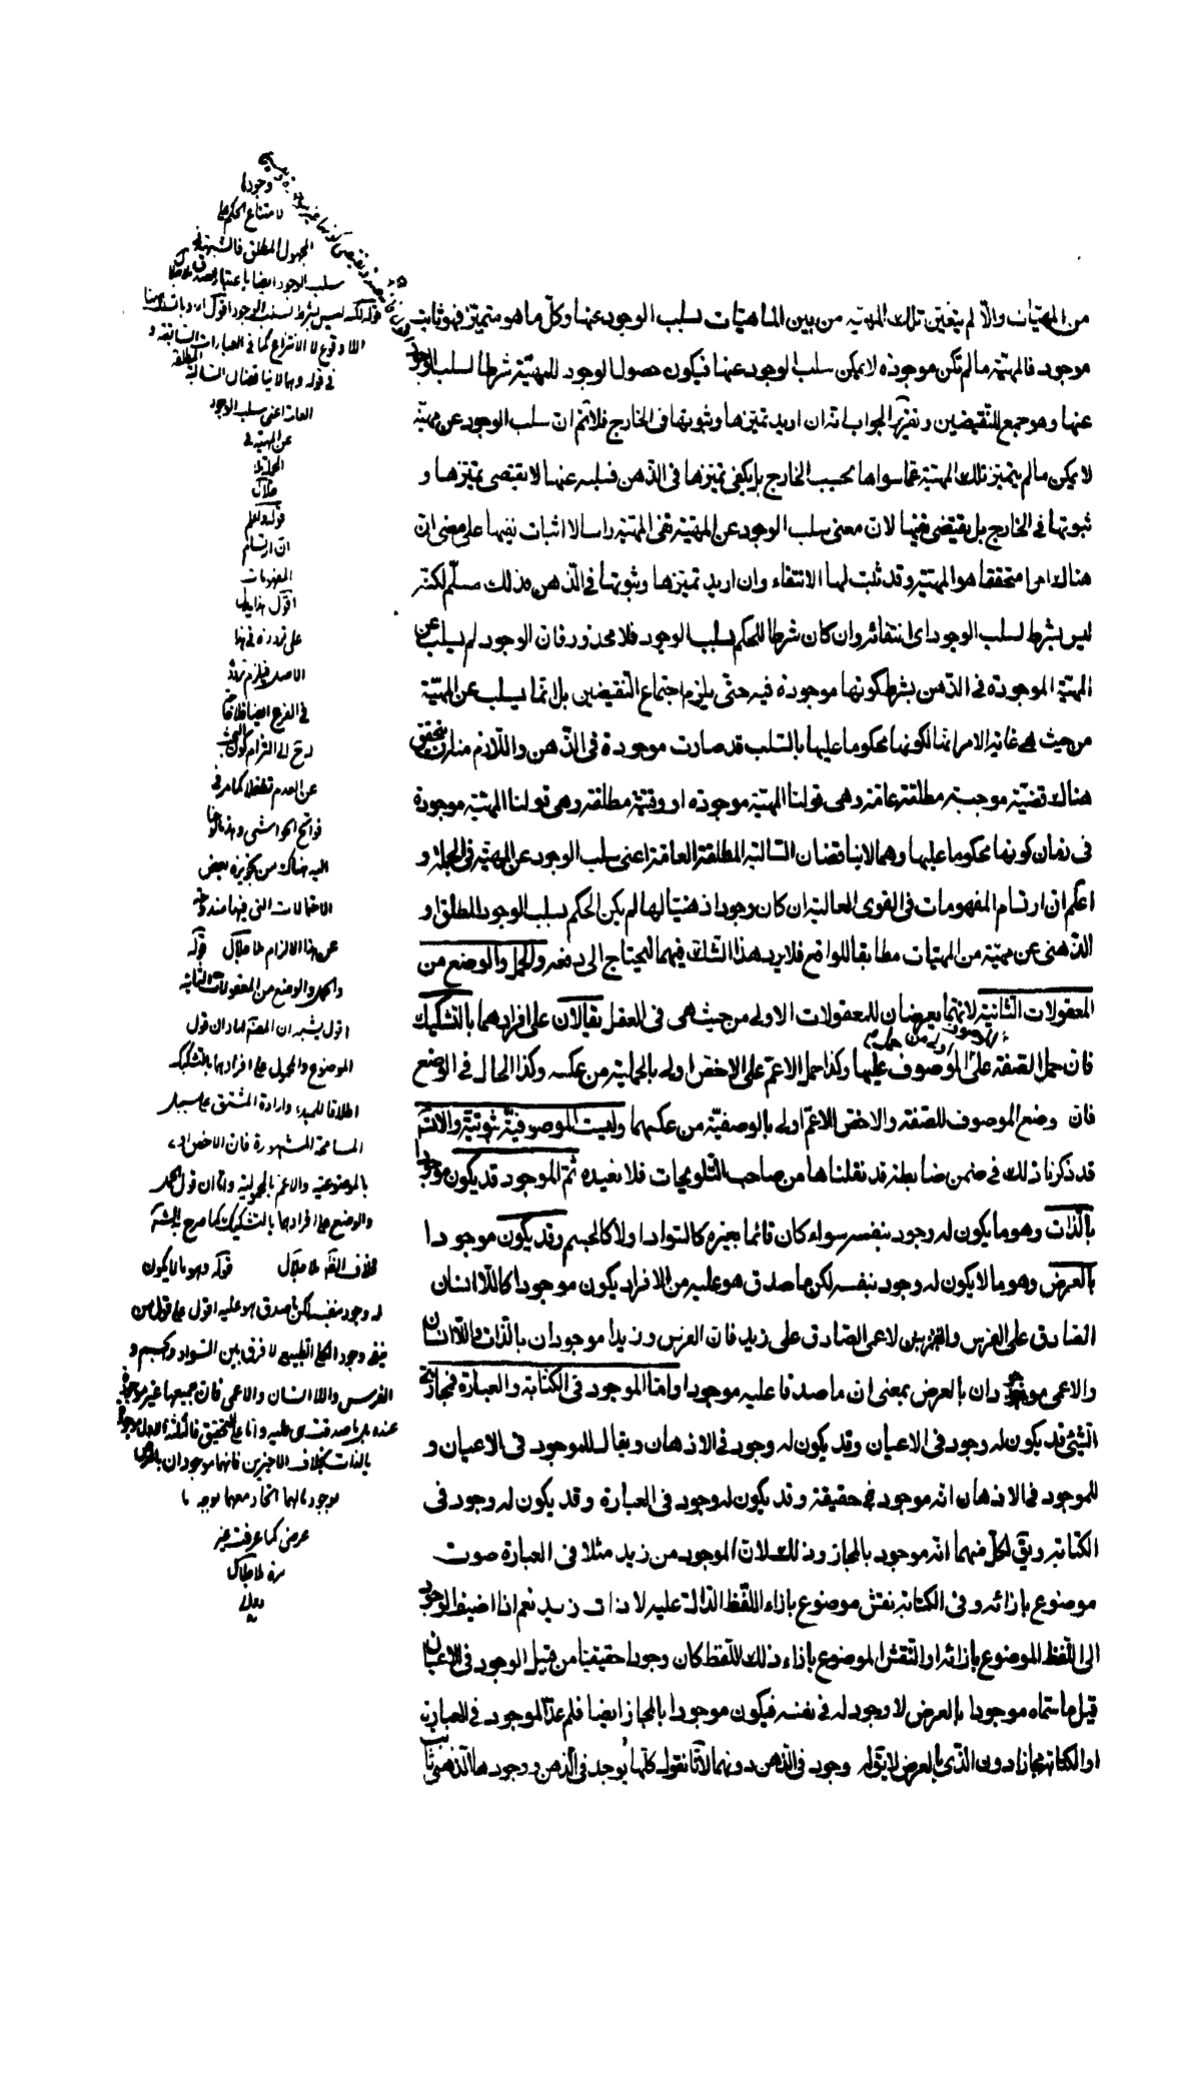 من المهيّات والّا لم يتعين تلك المهيّة من بين الماهيّات لسلب الوجود عنها وكلّ ما هو متميّز فهو ثابت
موجود فالمهيّة ما لم تكن موجودة لا يمكن سلب الوجود عنها فيكون حصول الوجود للمهيّة شرطا لسلب الوجود
عنها وهو جمع للنّقيضين وتقرير الجواب انّه ان اريد تميّزها وثبوتها فى الخارج فلا نمّ انّ سلب الوجود عن مهيّة
لا يمكن ما لم يتميّز تلك المهيّة عمّا سواها بحسب الخارج بل يكفى تميّزها فى الذهن فسلبه عنها لا يقتضى تميّزها و
ثبوتها فى الخارج بل يقتضى نفيها لانّ معنى سلب الوجود عن المهيّة نفى المهيّة راسا لا اثبات نفيها على معنى انّ
هناك امرا متحققا هو المهيّة وقد ثبت لها الانتفاء وان اريد تميّزها وثبوتها فى الذّهن فذلك مسلّم لكنّه
ليس بشرط لسلب الوجود اى انتفائه وان كان شرطا للحكم بسلب الوجود فلا محذور فانّ الوجود لم يسلب عن
المهيّة الموجودة فى الذّهن بشرط كونها موجودة فيه حتّى يلزم اجتماع النّقيضين بل انّما يسلب عن المهيّة
من حيث هى غاية الامر انّها لكونها محكوما عليها بالسّلب قد صارت موجودة فى الذّهن واللّازم منه ان يتحقق
هناك قضيّة موجبة مطلقة عامّة وهى قولنا المهيّة موجودة او وقتيّة مطلقة وهى قولنا المهيّة موجودة
فى زمان كونها محكوما عليها وهما لا يناقضان السّالبة المطلقة العامّة اعنى سلب الوجود عن المهيّة فى الجملة و
اعلم ان ارتسام المفهومات فى القوى العالية ان كان وجودا ذهنيّا لها لم يكن الحكم بسلب الوجود المطلق او
الذّهنى عن مهيّة من المهيّات مطابقا للواقع فلا يرد هذا الشّك فيهما ليحتاج الى دفعه والحمل والوضع من
المعقولات الثّانية لانّهما يعرضان للمعقولات الاولى من حيث هى فى العقل يقالان على افرادهما بالتّشكيك
فان حمل الصّفة على الموصوف عليها وكذا حمل الاعمّ على الاخصّ اولى بالحملية من عكسه وكذا الحال فى الوضع
فان وضع الموصوف للصّفة والاخصّ للاعمّ اولى بالوصفيّة من عكسهما وليست الموصوفيّة ثبوتيّة والّا تسّم
قد ذكرنا ذلك فى ضمن ضابطة قد نقلناها من صاحب التّلويحات فلا نعيده ثمّ الموجود قد يكون موجودا
بالذّات وهو ما يكون له وجود بنفسه سواء كان قائما بغيره كالسّواد او لا كالجسم وقد يكون موجودا
بالعرض وهو ما لا يكون له وجود بنفسه لكن ما صدق هو عليه من الافراد يكون موجودا كاللّا انسان
الصّادق على الفرس والاعمى الصّادق على زيد فانّ الفرس وزيدا موجودان بالذّات واللّا انسان
والاعمى موجودان بالعرض بمعنى ان ما صدقا عليه موجود وامّا الموجود فى الكتابة والعبارة فمجازىّ
الشّئ قد يكون له وجود فى الاعيان وقد يكون له وجود فى الاذهان ويقال للموجود فى الاعيان و
للموجود فى الاذهان انّه موجود حقيقة وقد يكون له وجود فى العبارة وقد يكون له وجود فى
الكتابة ويق لكلّ منهما انّه موجود بالمجاز وذلك لانّ الموجود من زيد مثلا فى العبارة صوت
موضوع بازائه وفى الكتابة نقش موضوع بازاء اللّفظ الدّالّ عليه لا ذات زيد نعم اذا اضيف الوجود
الى اللّفظ الموضوع بازائه او النّقش الموضوع بازاء ذلك اللّفظ كان وجودا حقيقيّا من قبيل الوجود فى الاعيان
قيل ما سمّاه موجودا بالعرض لا وجود له فى نفسه فيكون موجودا بالمجاز ايضا فلم عدّ الموجود فى العبارة
او الكتابة مجازا دون الّذى بالعرض لا يق له وجود فى الذّهن دونهما لانّا نقول كلّها يوجد فى الذّهن ووجودها الذّهنىّ
وجودها
لامتناع الحكم على
المجهول المطلق فالشبهة فى
سلب الوجود ايضا باعتبار
فى قوله وهما لا يناقضان السّالبة المطلقة
العامة اعنى سلب الوجود
عن المهيّة فى
الجملة
ملا جلال
قوله واعلم
ان ارتسام
المفهومات
اقول هذا
على تردده فى هذا
الاصل فيلزم تردّد
فى الفرع ايضا
عن العدم
فواتح الحواشى
اليه هناك من تجويزه بعض
الاحتمالات التى فيها مندوحة
عن هذا الالزام ملا جلال قوله
والحمل والوضع من المعقولات الثانية
اقول يشبه ان المصنّف اراد ان قول
الموضوع والمحمول على افرادهما بالتشكيك
اطلاقا للمبدء وارادة المشتق على سبيل
المسامحة المشهورة فان الاخص اولى
بالموضوعية والاعم بالمحمولية وامّا ان قول الحمل
والوضع على افرادهما بالتشكيك كما صرح به الش
ملا جلال قوله وهو ما لا يكون
له وجود بنفسه لكن ما صدق هو عليه اقول على قول من
ينفى وجود الكلى الطبيعى لا فرق بين السّواد والجسم و
الفرس واللا انسان والاعمى فان جميعها غير موجودة
عنده بل ما صدقت هى عليه وامّا على التحقيق فالثلثة الاول موجودة
بالذات بخلاف الاخيرين فانهما موجودان بالعرض
اتحاد معهما بوجه ما
عرضى كما عرفت غير
مرة ملا جلال